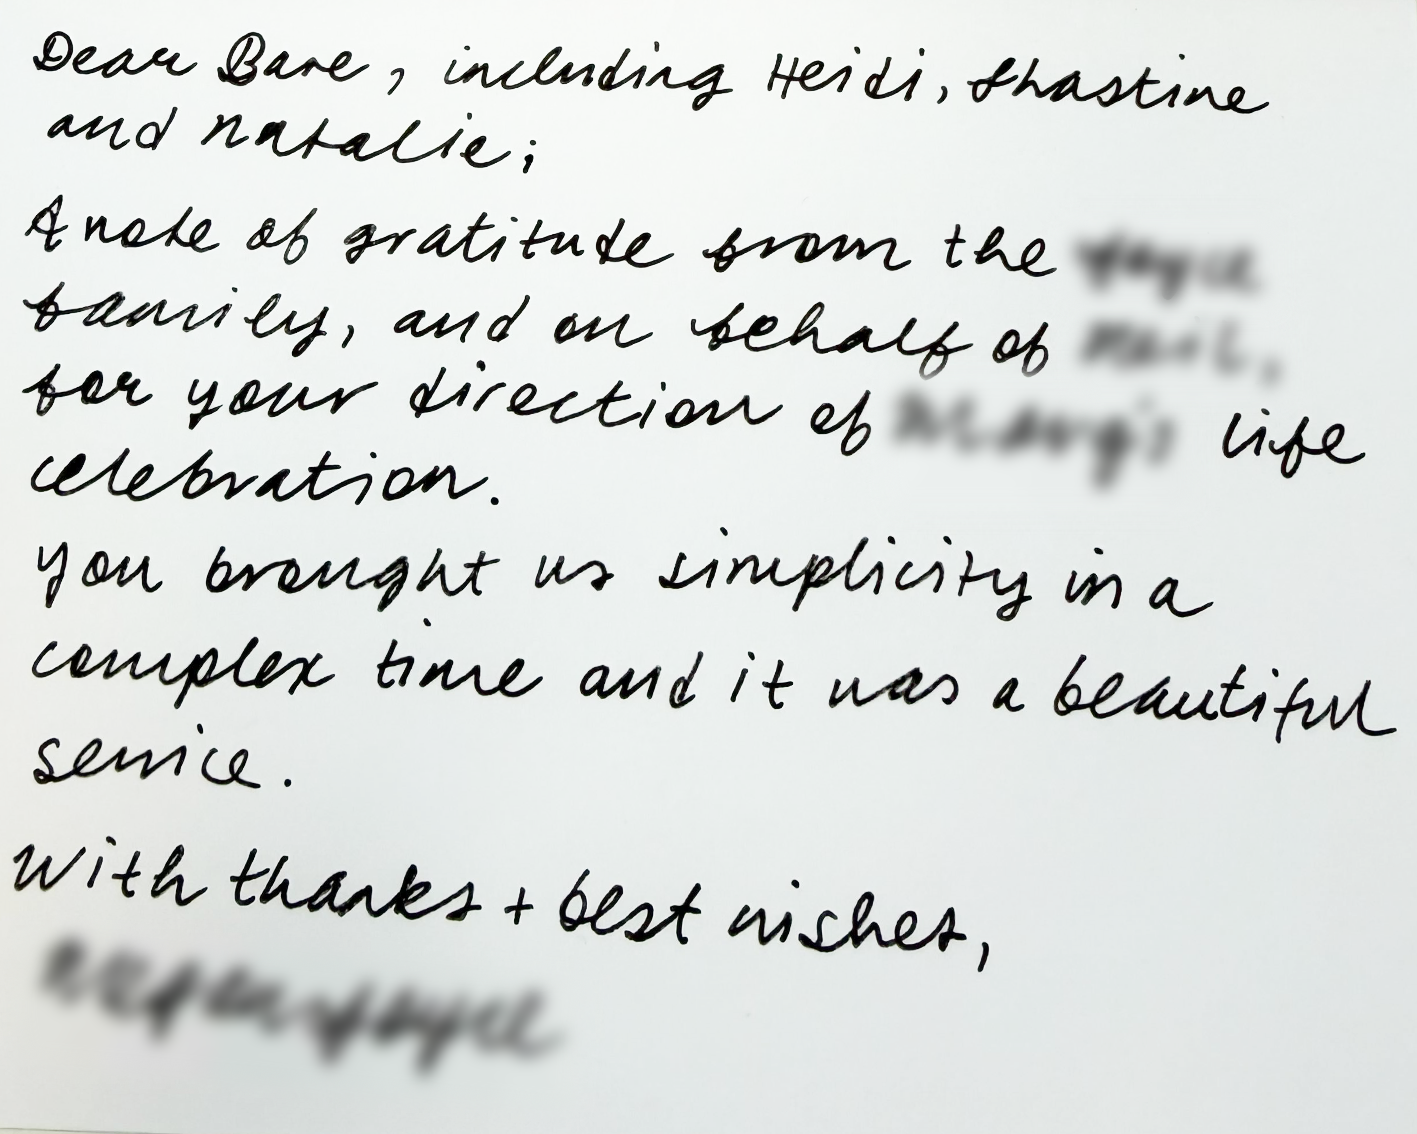 Dear Bare, including Heidi, Shastine
and Natalie;
A note of gratitude from the
family, and on behalf of
for your direction of life
celebration.
You brought us simplicity in a
complex time and it was a beautiful
service.
With thanks + best wishes,